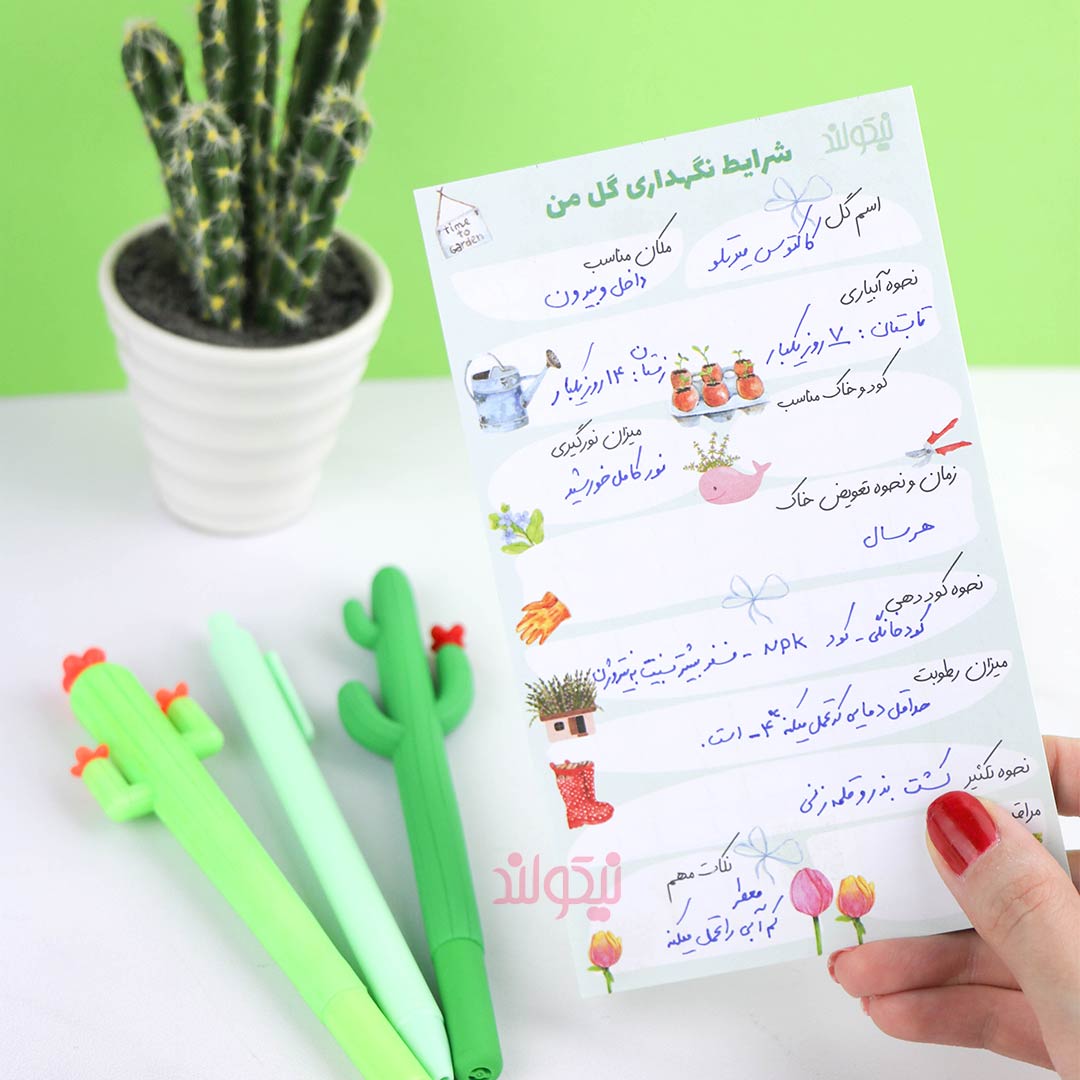 نیکولند
شرایط نگهداری گل من
time
to
garden
اسم گل
کاکتوس میرتیلو
مکان مناسب
داخل و بیرون
نحوه آبیاری
تابستان : ۷ روز یکبار
زمستان : ۱۴ روز یکبار
کود و خاک مناسب
میزان نورگیری
نور کامل خورشید
زمان و نحوه تعویض خاک
هر سال
نحوه کود دهی
کود خانگی - کود NPK - فسفر بیشتر نسبت به نیتروژن
میزان رطوبت
حداقل دمایی که تحمل میکنه ۴- است.
نحوه تکثیر
کشت بذر و قلمه زنی
نکات مهم
معطر
کم آبی را تحمل میکنه
نیکولند